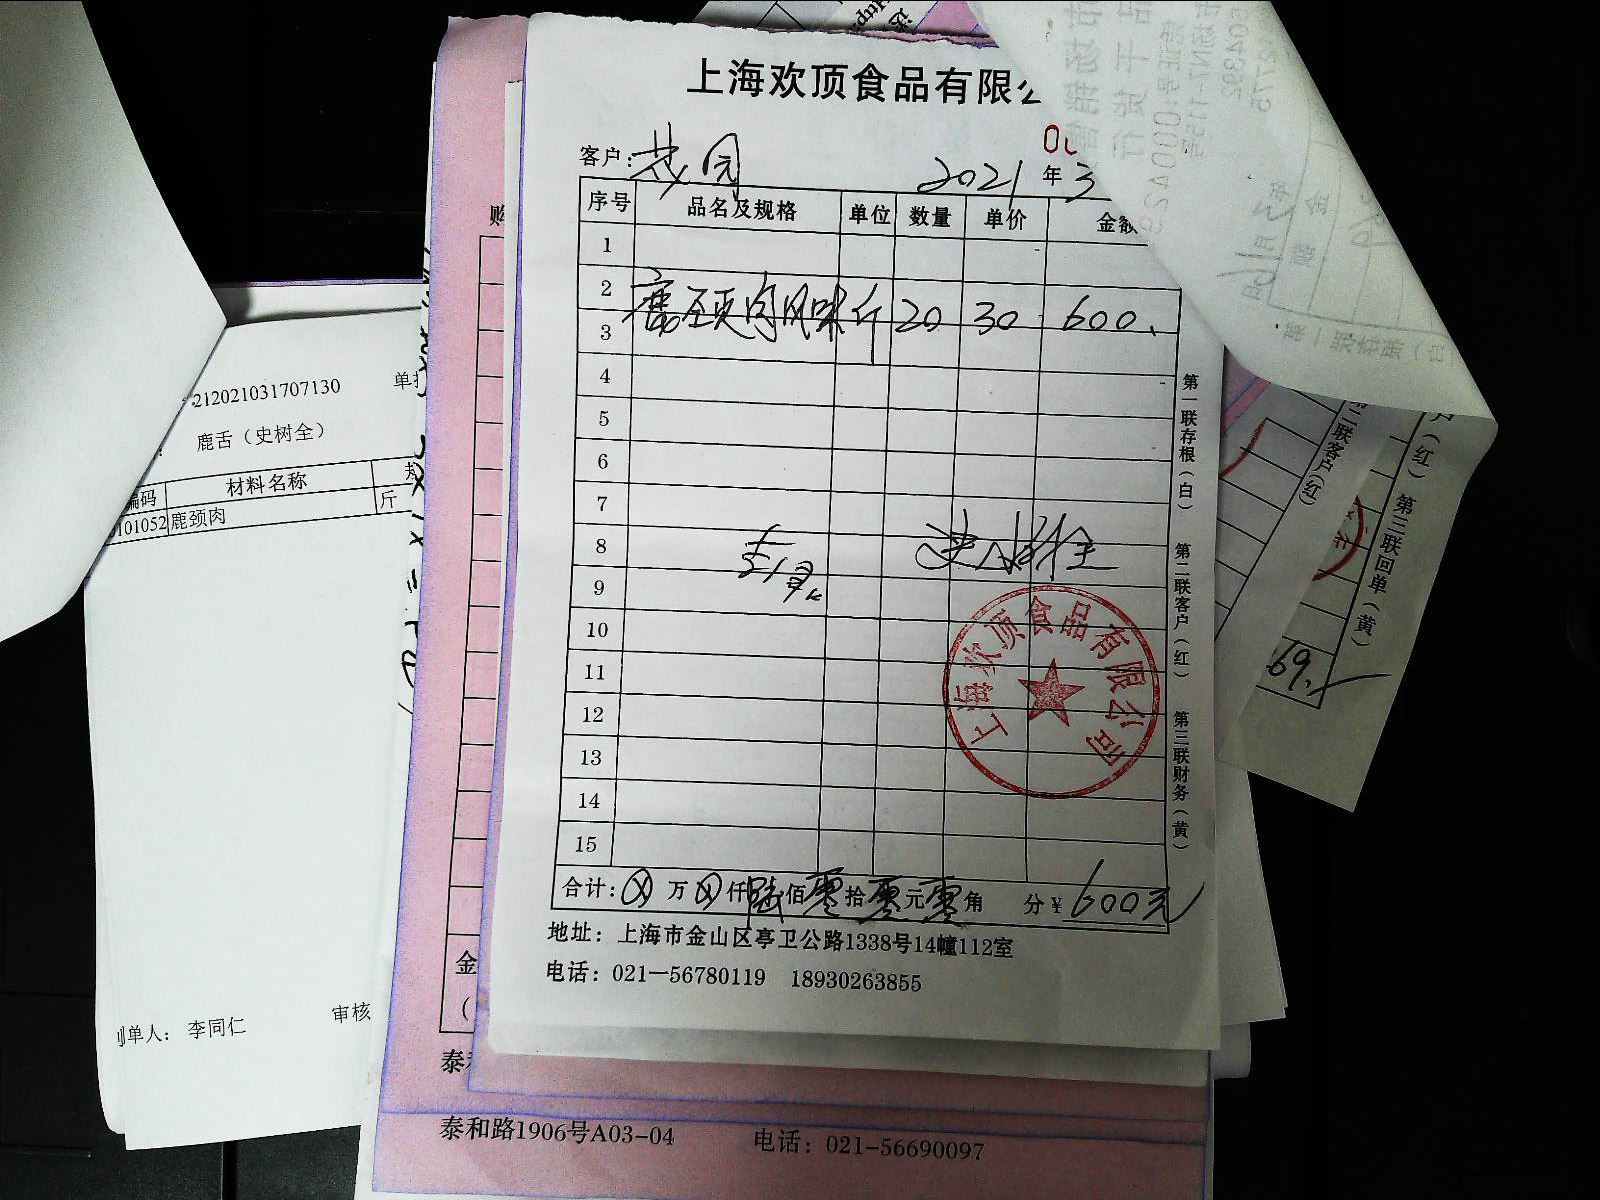 上海欢顶食品有限公
客户:
2021 年 3
序号 品名及规格 单位 数量 单价 金额
1
2 鹿颈肉风味 斤 20 30 600.
3
4
5
6
7
8 史树全
9
10
11
12
13
14
15
合计: ⊗ 万 ⊗ 仟 陆 佰 零 拾 零 元 零 角 分 ¥ 600元
地址: 上海市金山区亭卫公路1338号14幢112室
电话: 021—56780119 18930263855
第一联存根(白) 第二联客户(红) 第三联财务(黄)
上海欢顶食品有限公司
212021031707130
鹿舌(史树全)
编码 材料名称
101052 鹿颈肉 斤
制单人: 李同仁 审核
购
金
泰和
泰和路1906号A03-04 电话: 021-56690097
二联客户(红)
(红) 第三联回单(黄)
69.